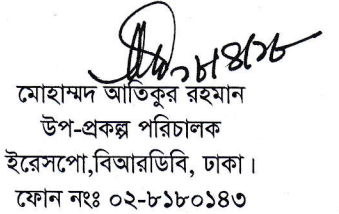 ১৮/৪/১৮
মোহাম্মদ আতিকুর রহমান
উপ-প্রকল্প পরিচালক
ইরেসপো,বিআরডিবি, ঢাকা।
ফোন নংঃ ০২-৮১৮০১৪৩